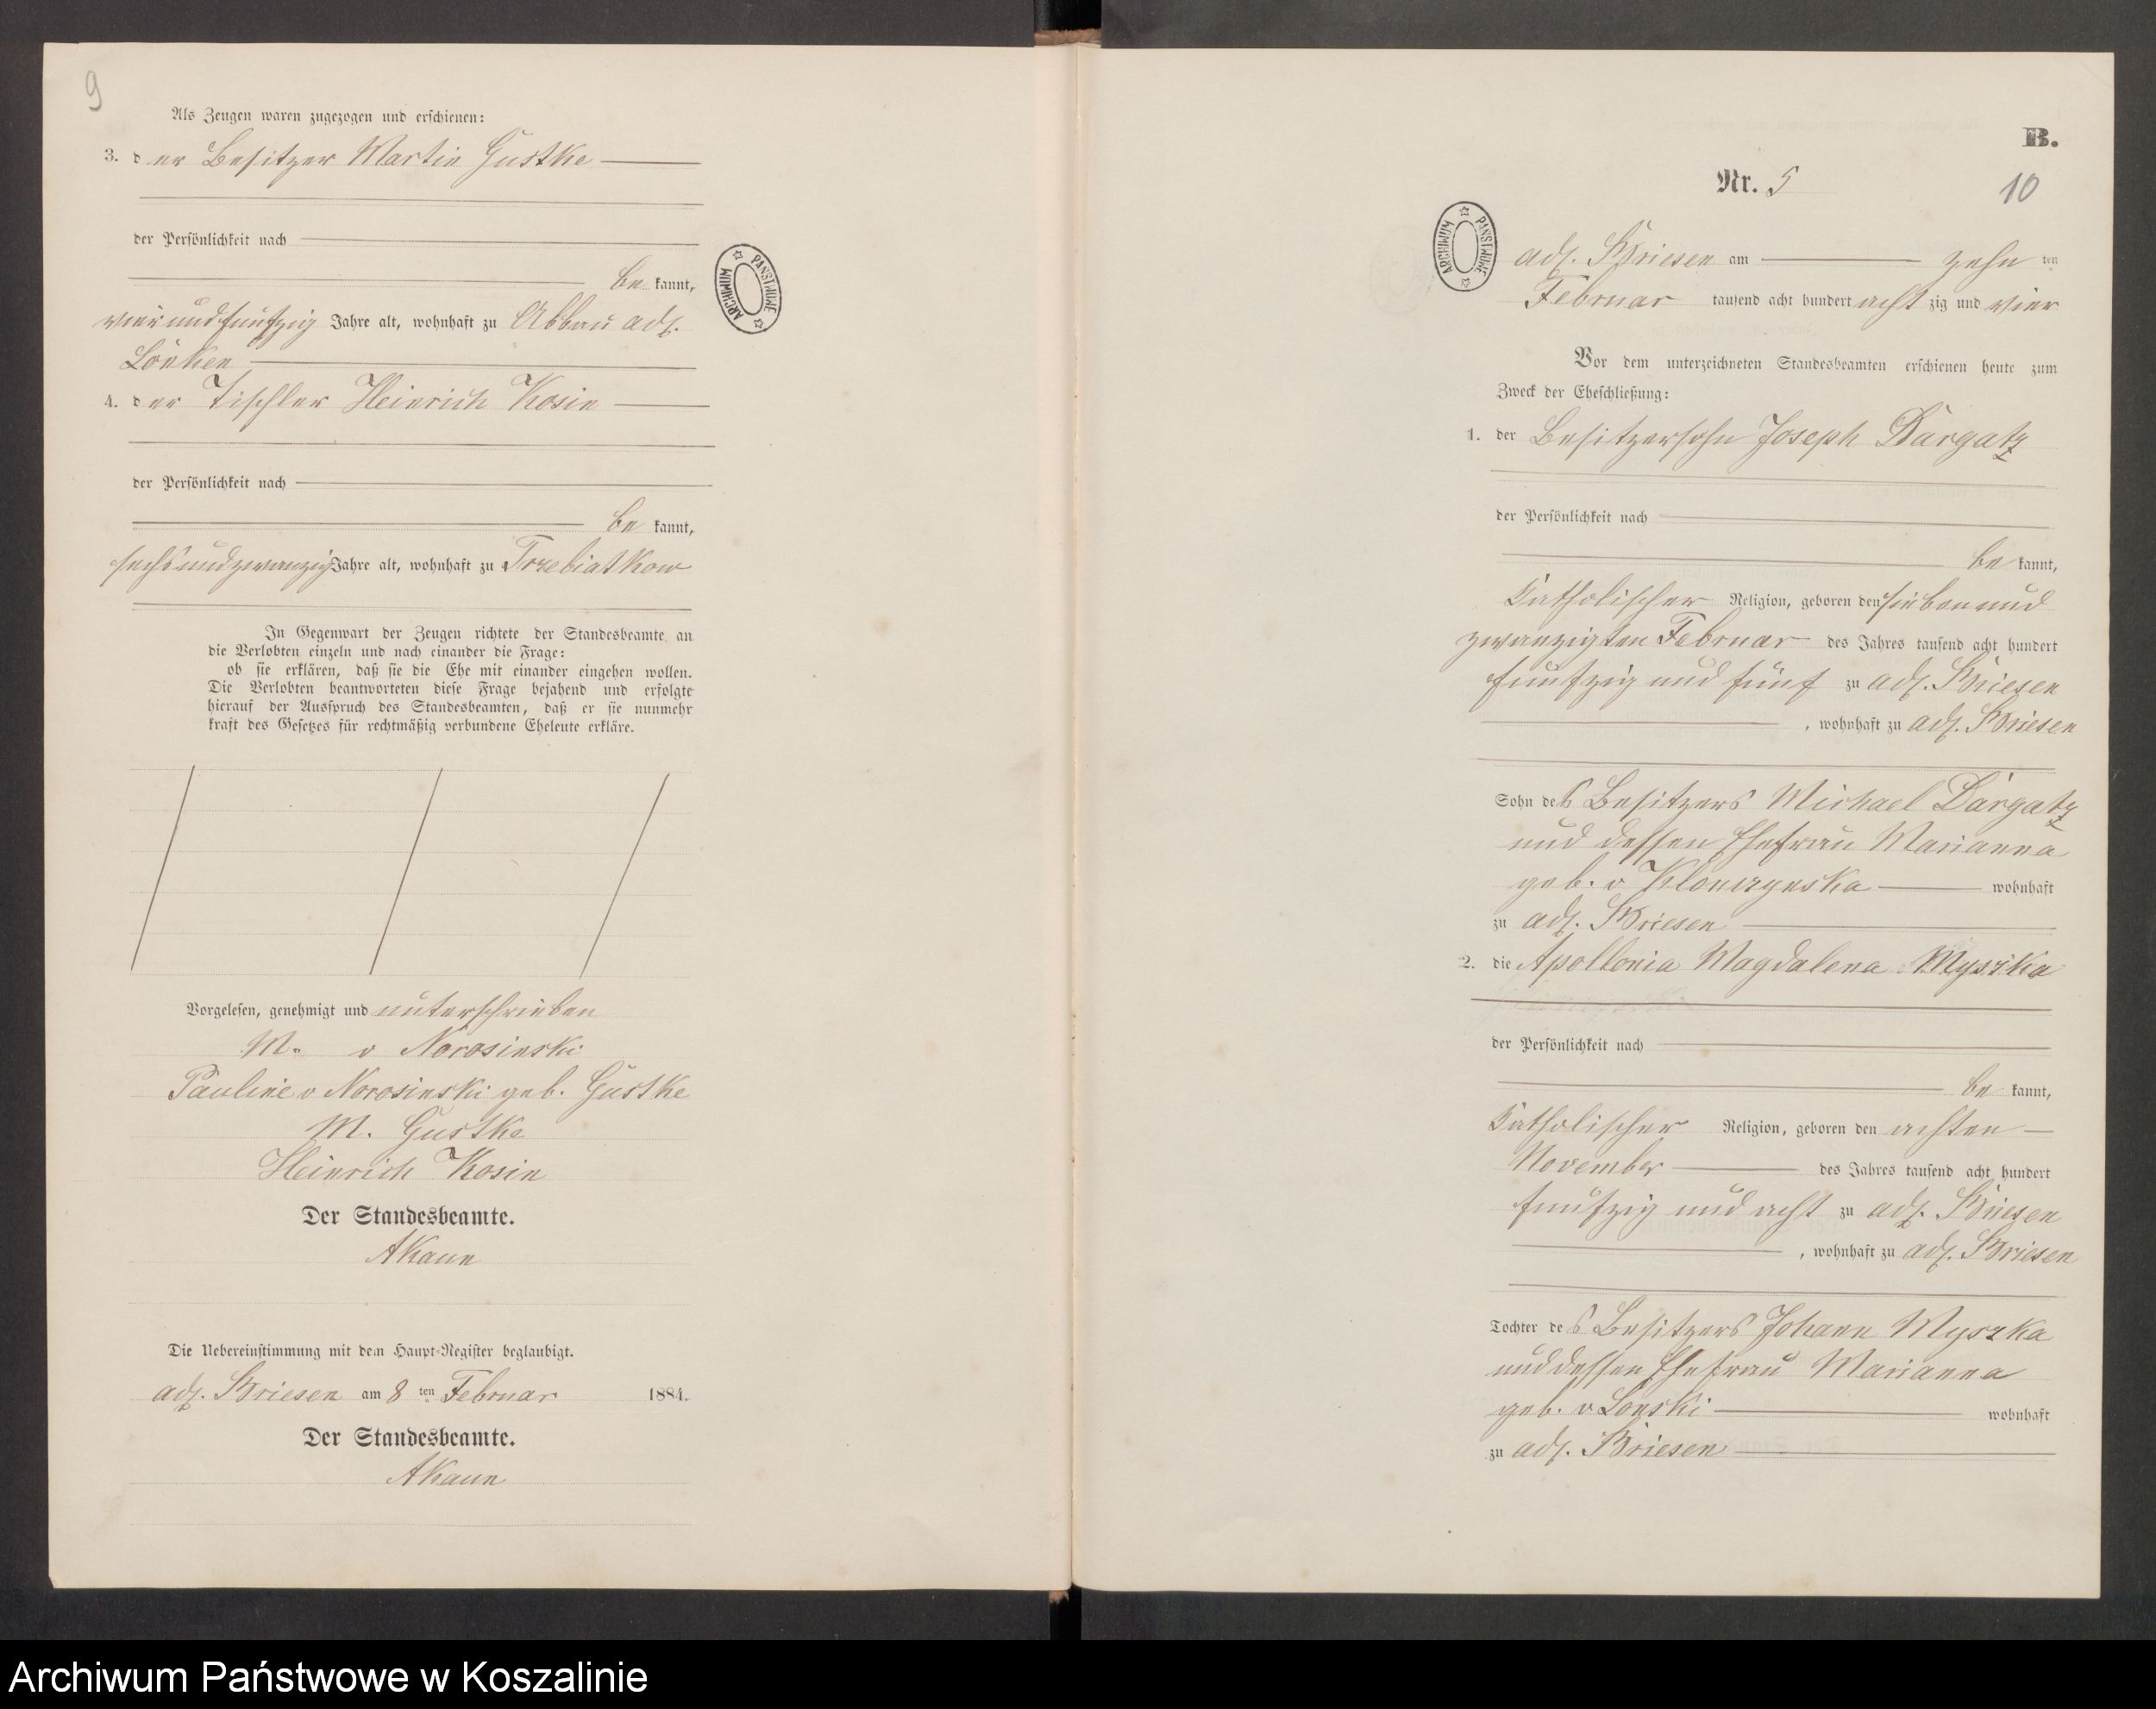 9
Als Zeugen waren zugezogen und erschienen:
3. der Besitzer Martin Gustke
der Persönlichkeit nach
be kannt,
vierundfunfzig Jahre alt, wohnhaft zu Abbau adl.
Lonken
4. der Tischler Heinrich Kosin
der Persönlichkeit nach
be kannt,
sechsundzwanzig Jahre alt, wohnhaft zu Trzebiatkow
In Gegenwart der Zeugen richtete der Standesbeamte an
die Verlobten einzeln und nach einander die Frage:
ob sie erklären, daß sie die Ehe mit einander eingehen wollen.
Die Verlobten beantworteten diese Frage bejahend und erfolgte
hierauf der Ausspruch des Standesbeamten, daß er sie nunmehr
kraft des Gesetzes für rechtmäßig verbundene Eheleute erkläre.
Vorgelesen, genehmigt und unterschrieben
M. v Norosinski
Pauline v Norosinski geb. Gustke
M. Gustke
Heinrich Kosin
Der Standesbeamte.
AKaun
Die Uebereinstimmung mit dem Haupt-Register beglaubigt.
adl. Briesen am 8 ten Februar 1884.
Der Standesbeamte.
AKaun
ARCHIWUM PAŃSTWOWE
B.
Nr. 5
10
ARCHIWUM PAŃSTWOWE
adl. Briesen am zehn ten
Februar tausend acht hundert acht zig und vier
Vor dem unterzeichneten Standesbeamten erschienen heute zum
Zweck der Eheschließung:
1. der Besitzersohn Joseph Dargatz
der Persönlichkeit nach
be kannt,
Katholischer Religion, geboren den siebenund
zwanzigten Februar des Jahres tausend acht hundert
funfzig und fünf zu adl. Briesen
, wohnhaft zu adl. Briesen
Sohn des Besitzers Michael Dargatz
und dessen Ehefrau Marianna
geb. v Klonczynska wohnhaft
zu adl. Briesen
2. die Apollonia Magdalena Myszka
der Persönlichkeit nach
be kannt,
Katholischer Religion, geboren den achten
November des Jahres tausend acht hundert
funfzig und acht zu adl. Briesen
, wohnhaft zu adl. Briesen
Tochter des Besitzers Johann Myszka
und dessen Ehefrau Marianna
geb. v Lonski wohnhaft
zu adl. Briesen
Archiwum Państwowe w Koszalinie